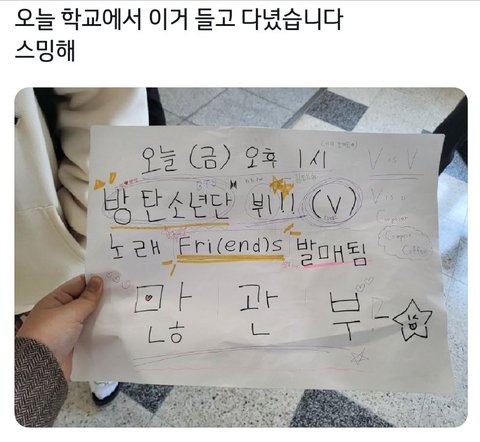 오늘 학교에서 이거 들고 다녔습니다
스밍해
오늘 (금) 오후 1시
V is V
BTS
방탄소년단 뷔!! (V)
V is V
노래 Fri(end)s 발매됨
Compose
Coffee
많 관 부-